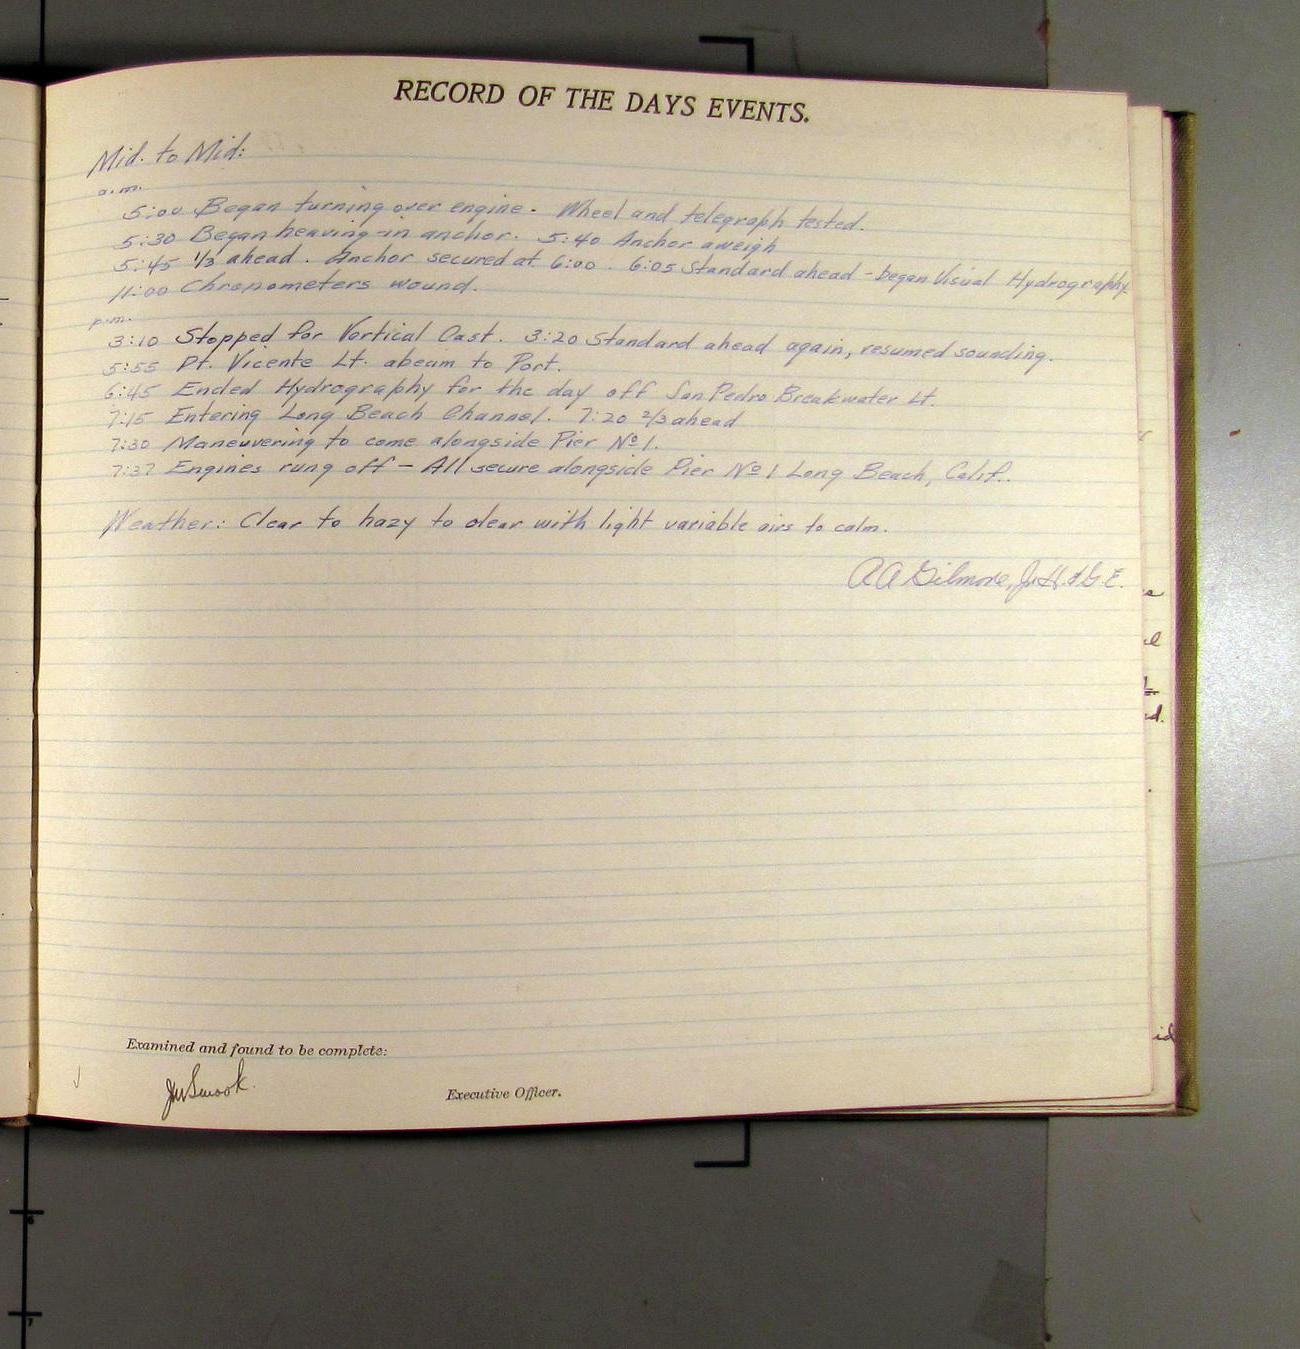 RECORD OF THE DAYS EVENTS.
Mid. to Mid:
a.m.
5:00 Began turning over engine. Wheel and telegraph tested.
5:30 Began heaving in anchor. 5:40 Anchor aweigh
5:45 1/3 ahead. Anchor secured at 6:00. 6:05 Standard ahead - began Visual Hydrography.
11:00 Chronometers wound.
p.m.
3:10 Stopped for Vertical Cast. 3:20 Standard ahead again, resumed sounding.
5:55 Pt. Vicente Lt. abeam to Port.
6:45 Ended Hydrography for the day off San Pedro Breakwater Lt.
7:15 Entering Long Beach Channel. 7:20 2/3 ahead
7:30 Maneuvering to come alongside Pier No 1.
7:37 Engines rung off — All secure alongside Pier No 1 Long Beach, Calif.
Weather: Clear to hazy to clear with light variable airs to calm.
R A Gilmore, Jr. H. & G. E.
Examined and found to be complete:
JW Smook.
Executive Officer.
6
7